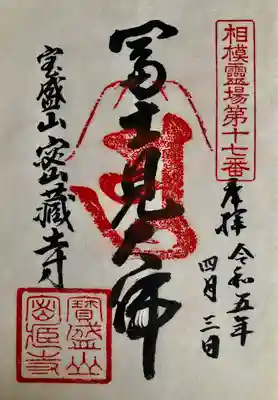 相模靈場第十七番
奉拝 令和五年
四月三日
冨士見大師
宝盛山密藏寺
寶盛山
密藏寺